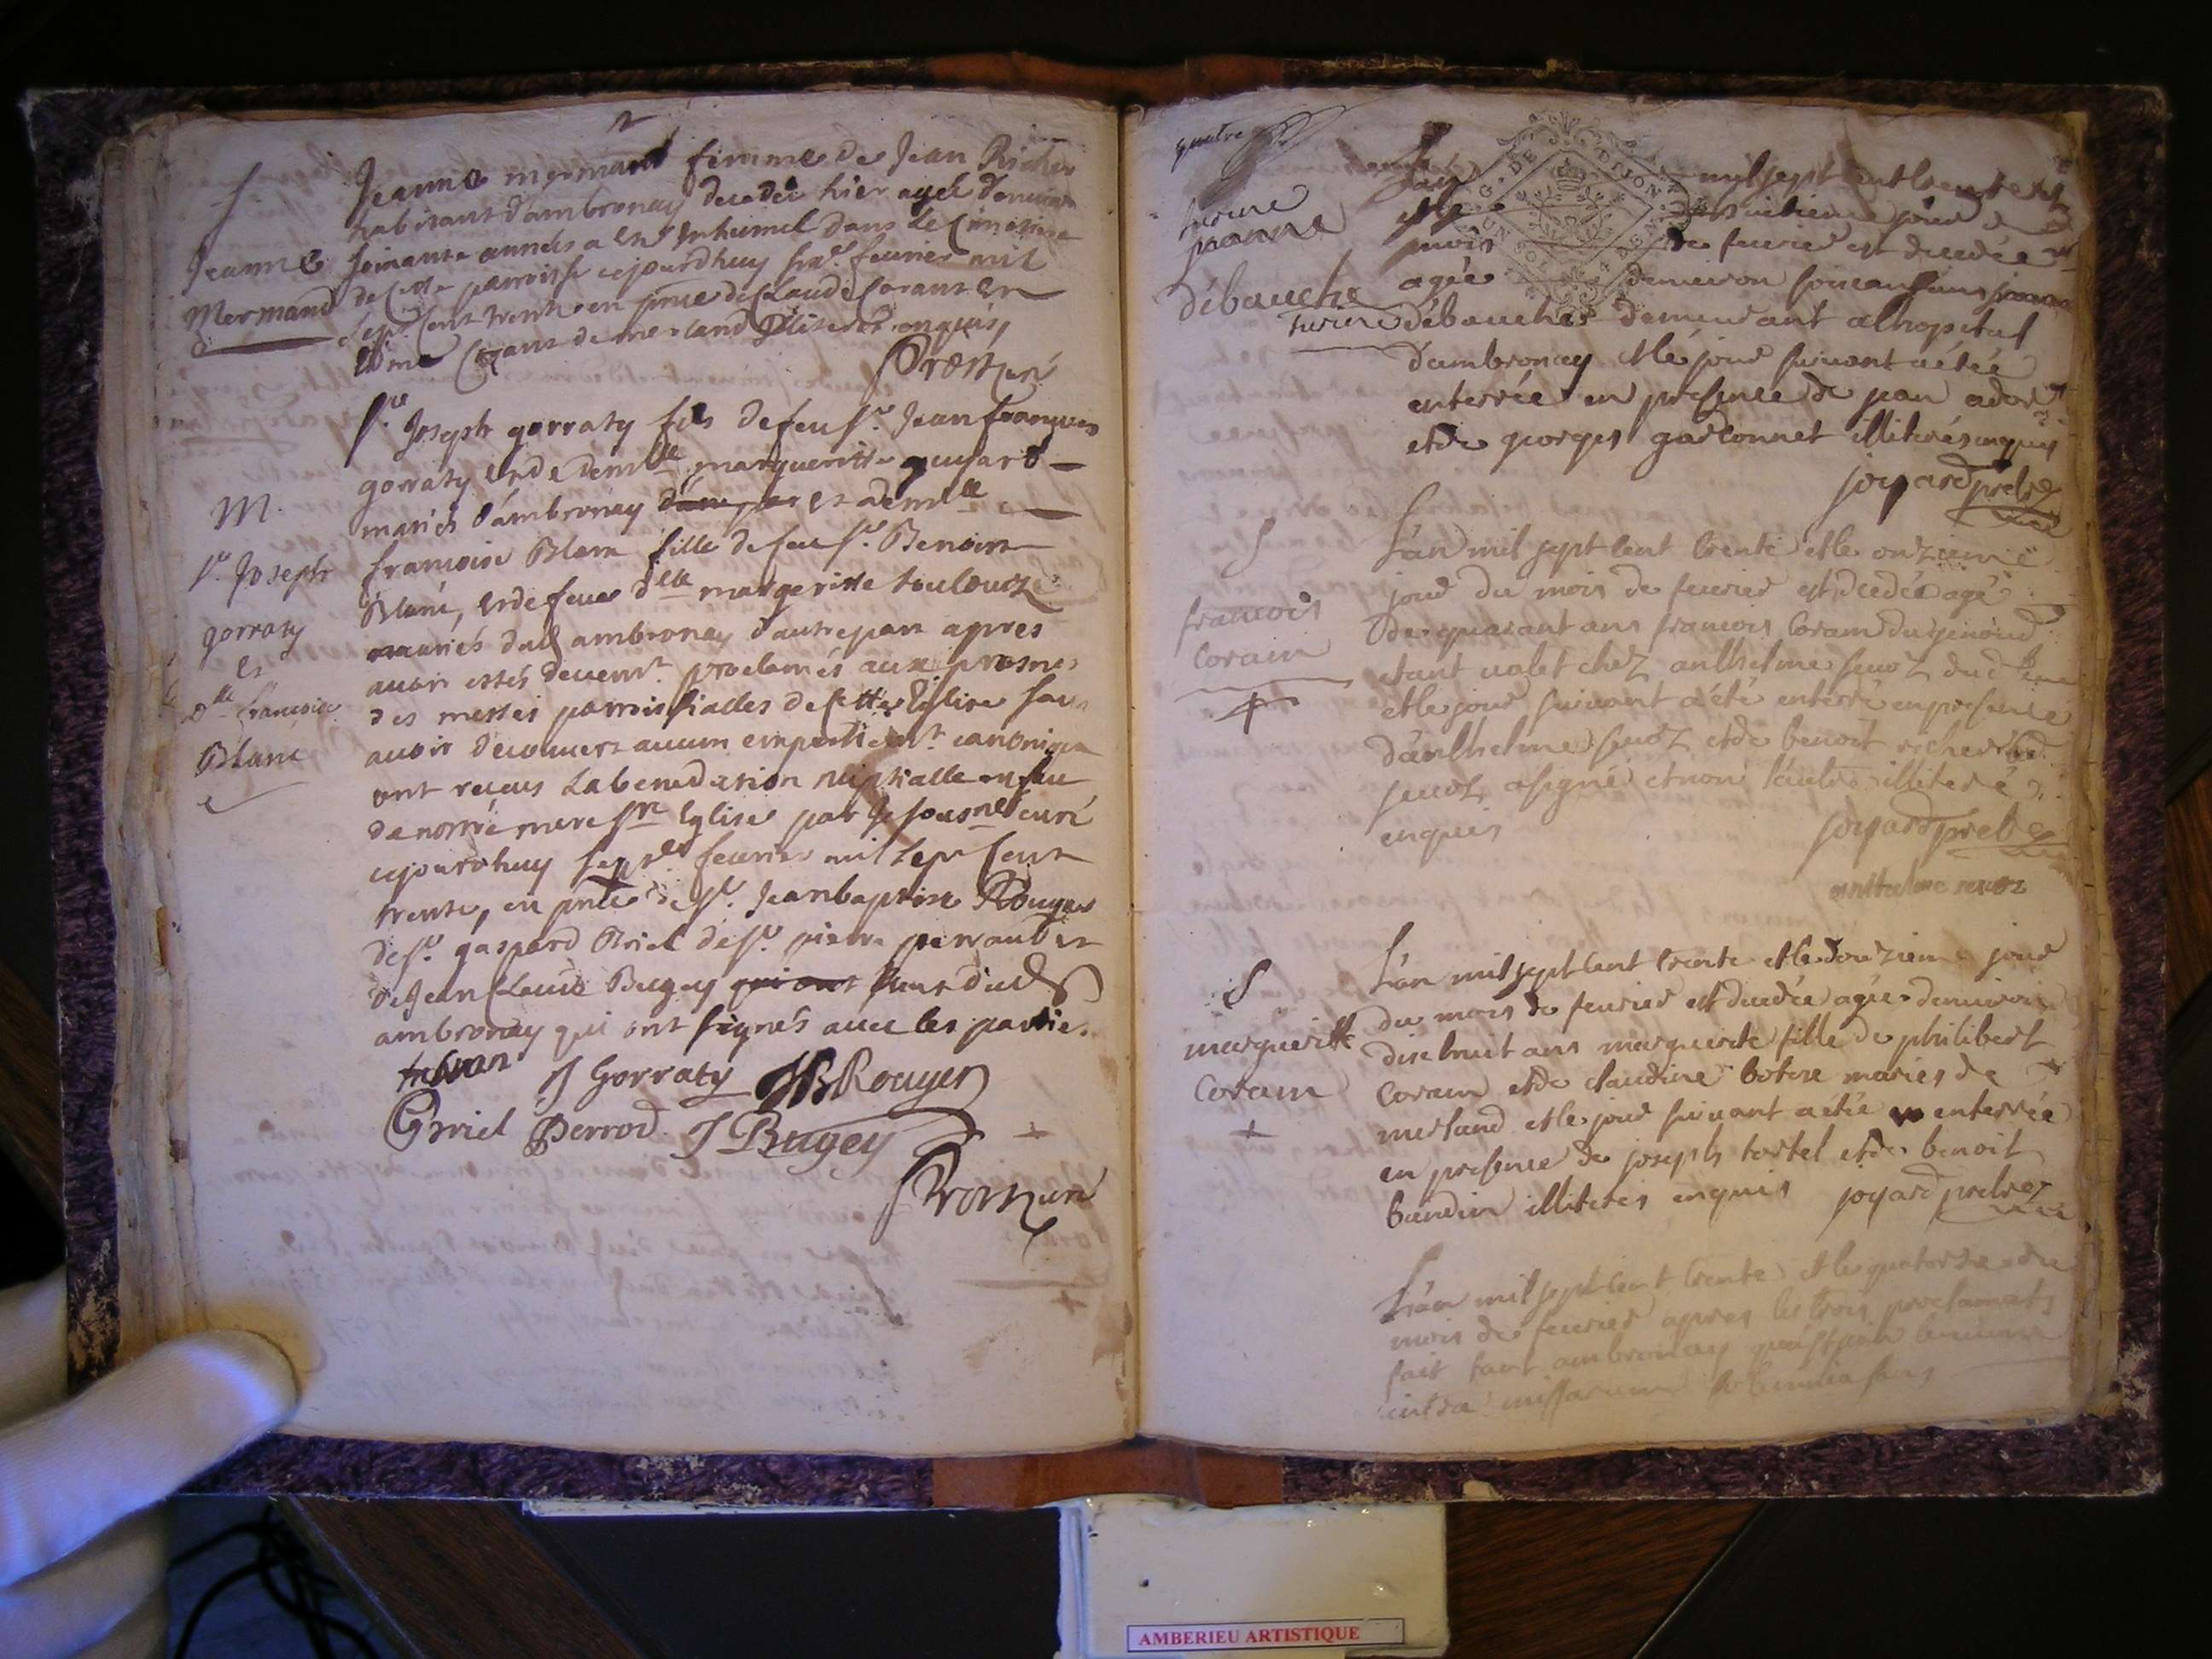 Jeanne mermand femme de Jean Richer
habitant d'ambronay decedée hier agée d'environ
soixante années a esté inhumée dans le Cimetiere
de cette parroisse cejourdhuy feuvrier mil
sept cent trente en pnce de Claude Corant et
Corant de merland illiterés enquis,
S
Jeanne
Mermand
sr. Joseph gorraty fils de feu sr. Jean francois
gorraty et de demlle margueritte guyard
mariés d'ambronay et demlle
francoise Blanc fille de feu sr. Benoist
Blanc, et de feue dlle margeritte toulouze
mariés dud ambronay d'autre part apres
avoir estés deuemt. proclamés aux prosnes
des messes parroissialles de cette Eglise sans
avoir decouvert aucun empechemt. canonique
ont receus La benediction nuptialle en face
de nostre mere ste Eglise par Je sousné curé
cejourdhuy sept feuvrier mil sept Cent
trente, en pnce de sr. Jean baptiste Rouyer
de sr. gaspard Briel de sr. pierre
de Jean Claude Bugey qui ont tous dud
ambronay qui ont signés avec les parties.
M.
sr. Joseph
gorraty
et
dlle francoise
Blanc
J Gorraty JB Rouyer
GBriel Perrod J Bugey
quatre
L'an mil sept cent trente et
le jour du
mois de feurier est decedée
agée d'environ soixante ans
débauche demeurant a lhopital
d'ambronay et le jour suivant a étée
enterrée en presence de jean
et de georges garconnet illiterés enquis
joyard prebre
jeanne
débauche
L'an mil sept cent trente et le onzieme
jour du mois de feurier est decedé agé
de quarant ans francois Coram
etant valet chez anthelme seuoz dud
et le jour suivant a été enterré en presence
d'anthelme seuoz et de benoit richerod
seuoz a signé et non l'autre illiteré
enquis joyard prebre
S
francois
Coram
L'an mil sept cent trente et le douzieme jour
du mois de feurier est decedée agée d'environ
dixe huit ans marguerite fille de philibert
Coram et de claudine botere mariés de
merland et le jour suivant a étée enterrée
en presence de joseph tortel et de benoit
baudin illiterés enquis joyard prebre
S
margueritte
Coram
L'an mil sept cent trente et le quatorze du
mois de feurier apres les trois proclamats
fait tant ambronay
intra missarum solemnia sans
AMBERIEU ARTISTIQUE